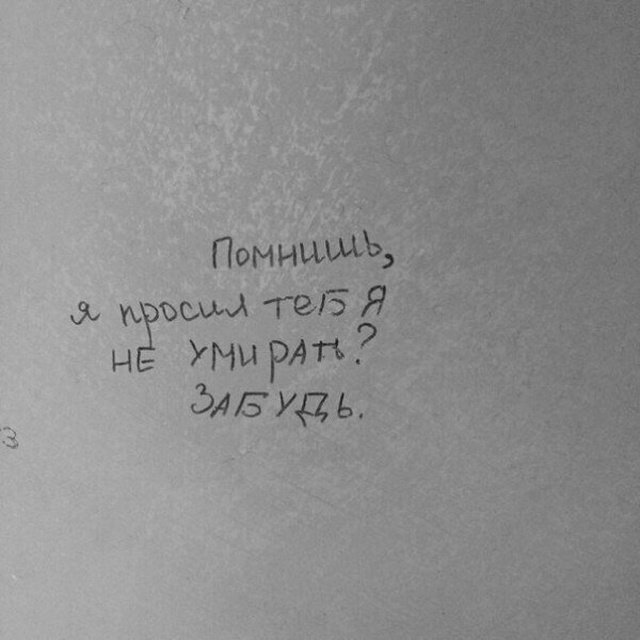 Помнишь,
я просил тебя
не умирать?
Забудь.
З